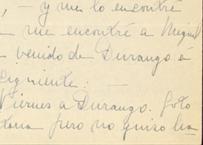 , – y me lo encontré
– me encontré a Miguel
venido de Durango á
siguiente: –
Viernes a Durango. Foto
pero no quiso ha